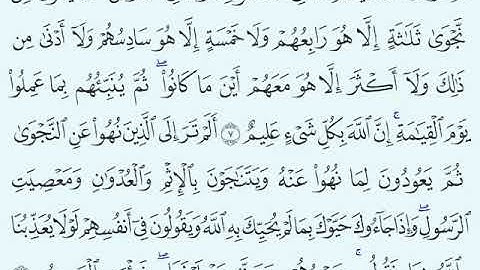 نَّجْوَىٰ ثَلَـٰثَةٍ إِلَّا هُوَ رَابِعُهُمْ وَلَا خَمْسَةٍ إِلَّا هُوَ سَادِسُهُمْ وَلَآ أَدْنَىٰ مِن
ذَٰلِكَ وَلَآ أَكْثَرَ إِلَّا هُوَ مَعَهُمْ أَيْنَ مَا كَانُوا۟ ۖ ثُمَّ يُنَبِّئُهُم بِمَا عَمِلُوا۟
يَوْمَ ٱلْقِيَـٰمَةِ ۚ إِنَّ ٱللَّهَ بِكُلِّ شَىْءٍ عَلِيمٌ ٧ أَلَمْ تَرَ إِلَى ٱلَّذِينَ نُهُوا۟ عَنِ ٱلنَّجْوَىٰ
ثُمَّ يَعُودُونَ لِمَا نُهُوا۟ عَنْهُ وَيَتَنَـٰجَوْنَ بِٱلْإِثْمِ وَٱلْعُدْوَٰنِ وَمَعْصِيَتِ
ٱلرَّسُولِ ۖ وَإِذَا جَآءُوكَ حَيَّوْكَ بِمَا لَمْ يُحَيِّكَ بِهِ ٱللَّهُ وَيَقُولُونَ فِىٓ أَنفُسِهِمْ لَوْلَا يُعَذِّبُنَا